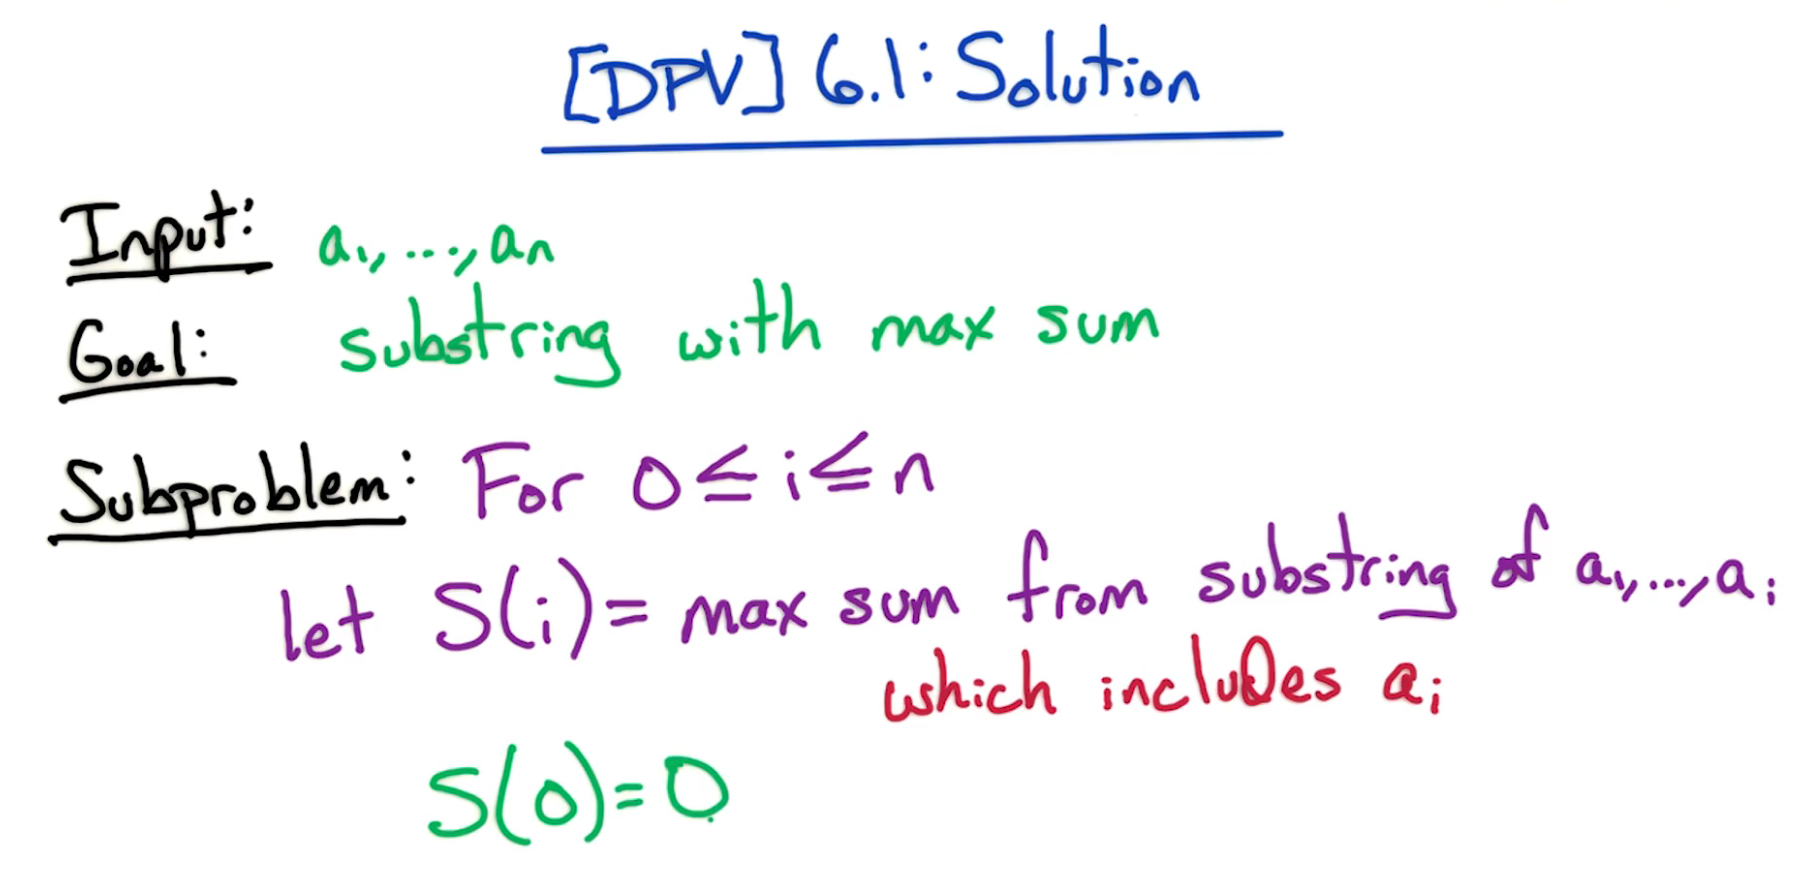 [DPV] 6.1: Solution
Input: a₁, ..., aₙ
Goal: substring with max sum
Subproblem: For 0 ≤ i ≤ n
let S(i) = max sum from substring of a₁, ..., aᵢ
which includes aᵢ
S(0) = 0